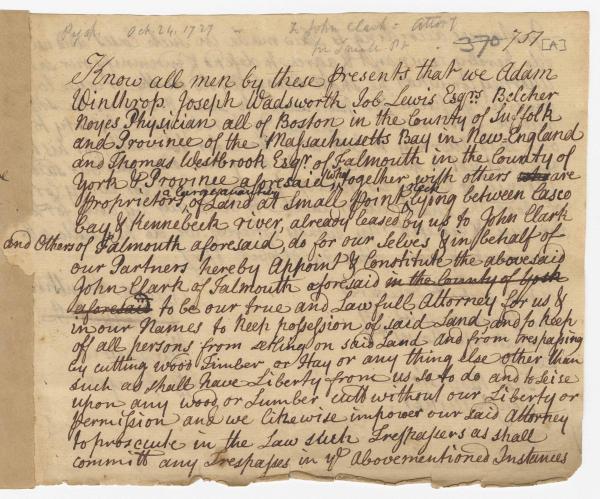 Oct. 24, 1727 To John Clark = Attor?
370 757 [A]
Know all men by these Presents that we Adam
Winthrop. Joseph Wadsworth Job Lewis Esqrs. Belcher
Noyes Physician all of Boston in the County of Suffolk
and Province of the Massachusetts Bay in New England
and Thomas Westbrook Esqr. of Falmouth in the County of
York & Province aforesaid, who together with others are
Proprietors, of Land at Small Point, lying between Casco
bay & Kennebeck river, already leased by us to John Clark
and others of Falmouth aforesaid, do for our Selves & in behalf of
our Partners hereby Appoint & Constitute the abovesaid
John Clark of Falmouth aforesaid in the County of York
aforesaid to be our true and Lawfull Attorney for us &
in our Names to keep possession of said Land, and to keep
off all persons from setling on said Land and from trespassing
by cutting wood Timber or Hay or any thing else other than
such as shall have Liberty from us so to do and to seise
upon any wood or Lumber cutt without our Liberty or
Permission and we likewise impower our said Attorney
to prosecute in the Law such Trespassers as shall
committ any Trespasses in ye. Abovementioned Instances